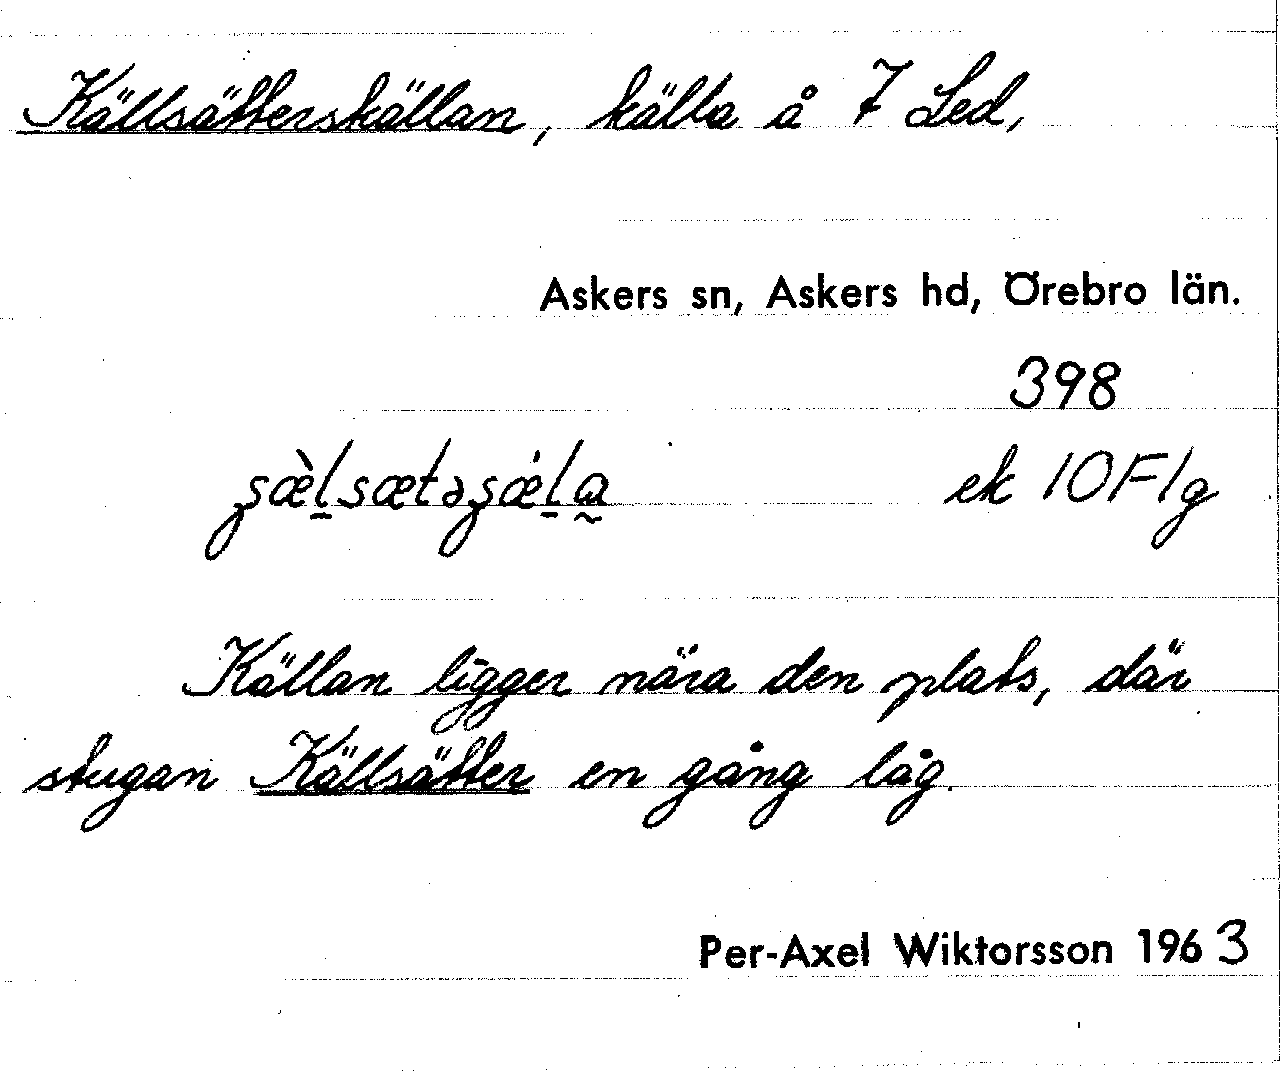 Källsätterskällan, källa å 7 Led,
Askers sn, Askers hd, Örebro län.
398
ʂæ̀l̠sætəʂæ̍l̠a̰ ek 10F1g
Källan ligger nära den plats, där
stugan Källsätter en gång låg.
Per-Axel Wiktorsson 1963